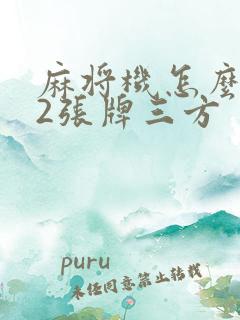 麻将機怎麼
2張牌三方
puru
未经同意禁止转载